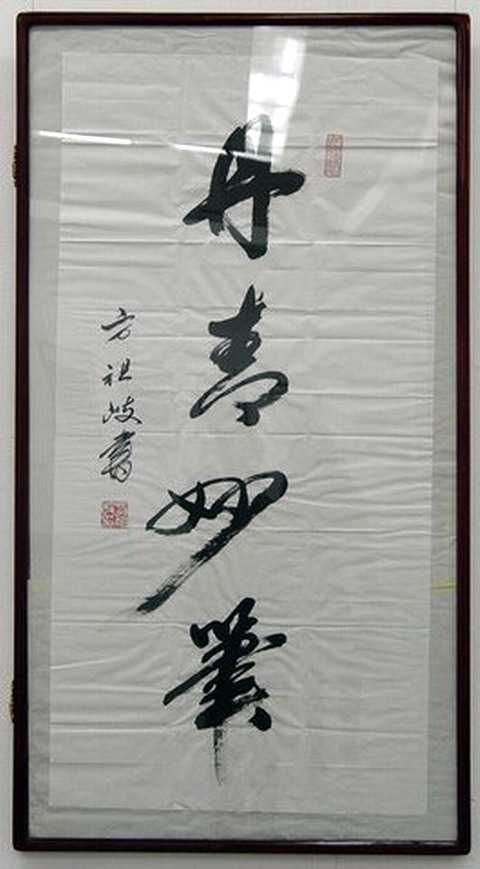 丹青妙筆
方祖岐書